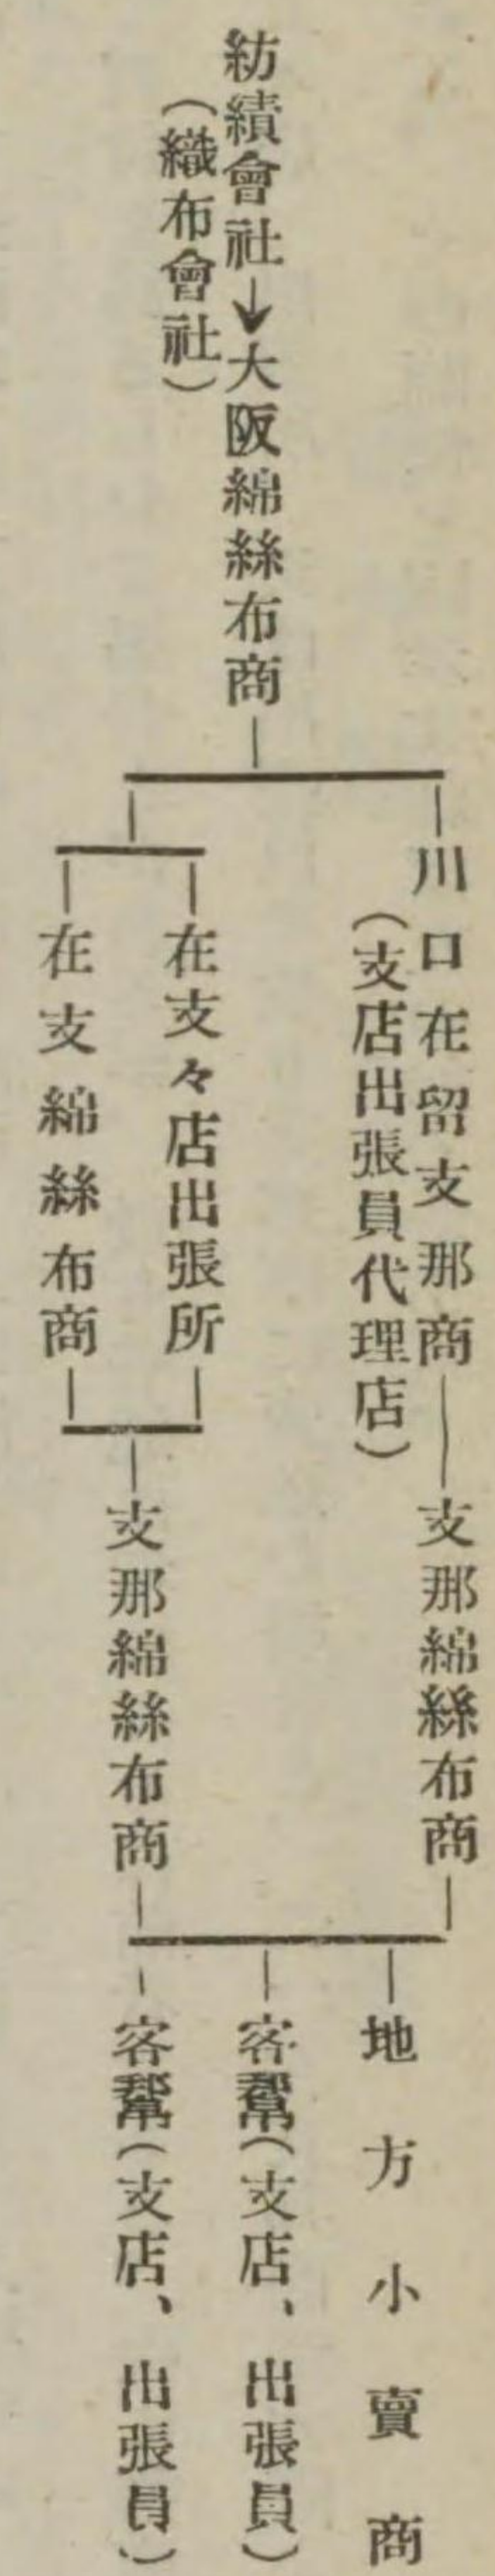 紡績會社→大阪綿絲布商
(織布會社)
川口在留支那商
(支店出張員代理店)
支那綿絲布商
在支々店出張所
在支綿絲布商
支那綿絲布商
地方小賣商
客幫(支店、出張員)
客幫(支店、出張員)